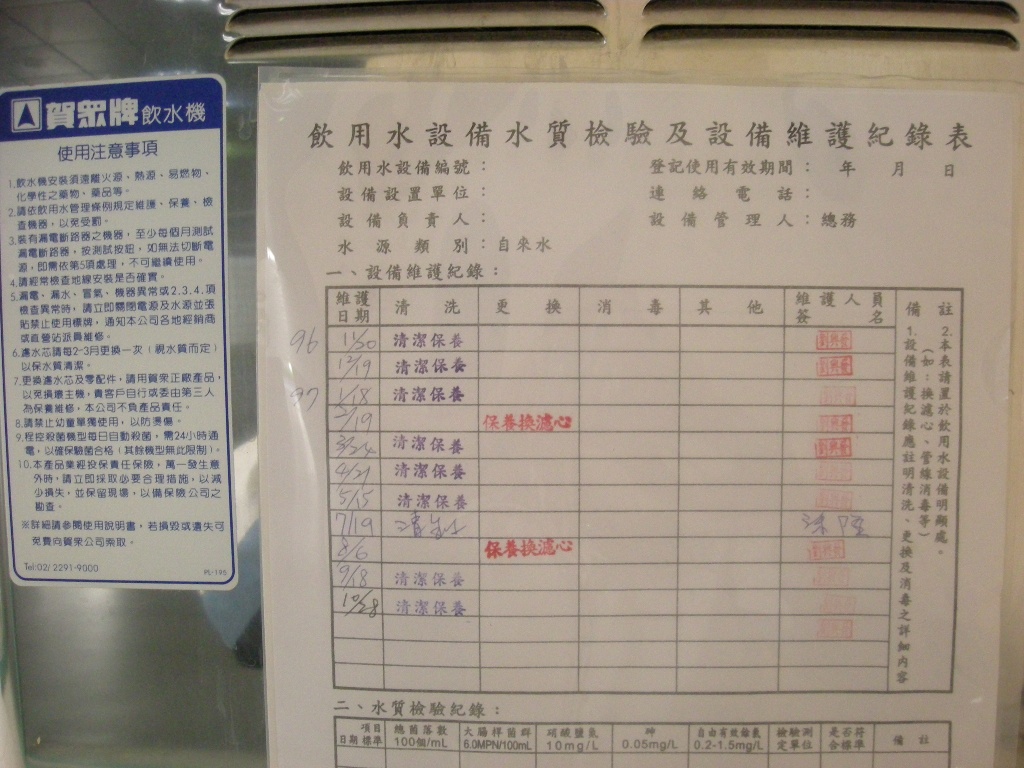 賀眾牌飲水機
使用注意事項
1.飲水機安裝須遠離火源、熱源、易燃物、
化學性之藥物、藥品等。
2.請依飲用水管理條例規定維護、保養、檢
查機器，以免受罰。
3.裝有漏電斷路器之機器，至少每個月測試
漏電斷路器，按測試按鈕，如無法切斷電
源，即需依第5項處理，不可繼續使用。
4.請經常檢查地線安裝是否確實。
5.漏電、漏水、冒氣、機器異常或2.3.4.項
檢查異常時，請立即關閉電源及水源並張
貼禁止使用標牌，通知本公司各地經銷商
或直營站派員維修。
6.濾水芯請每2-3月更換一次（視水質而定）
以保水質清潔。
7.更換濾水芯及零配件，請用賀眾正廠產品，
以免損壞主機，貴客戶自行或委由第三人
為保養維修，本公司不負產品責任。
8.請禁止幼童單獨使用，以防燙傷。
9.程控殺菌機型每日自動殺菌，需24小時通
電，以確保驗菌合格（其餘機型無此限制）。
10.本產品業經投保責任保險，萬一發生意
外時，請立即採取必要合理措施，以減
少損失，並保留現場，以備保險公司之
勘查。
※詳細請參閱使用說明書，若損毀或遺失可
免費向賀眾公司索取。
Tel:02/ 2291-9000
PL-195
飲用水設備水質檢驗及設備維護紀錄表
飲用水設備編號： 登記使用有效期間： 年 月 日
設備設置單位： 連絡電話：
設備負責人： 設備管理人：總務
水源類別：自來水
一、設備維護紀錄：
維護日期 清洗 更換 消毒 其他 維護人員簽名 備註
96 11/20 清潔保養
12/19 清潔保養
97 1/18 清潔保養
2/19 保養換濾心
3/24 清潔保養
4/21 清潔保養
5/15 清潔保養
7/19
8/6 保養換濾心
9/18 清潔保養
10/28 清潔保養
1.設備維護紀錄應註明清洗、更換及消毒之詳細內容
（如：換濾心、管線消毒等）
2.本表請置於飲用水設備明顯處。
二、水質檢驗紀錄：
項目 日期標準 總菌落數 100個/mL 大腸桿菌群 6.0MPN/100mL 硝酸鹽氮 10mg/L 砷 0.05mg/L 自由有效餘氯 0.2-1.5mg/L 檢驗測定單位 是否符合標準 備註